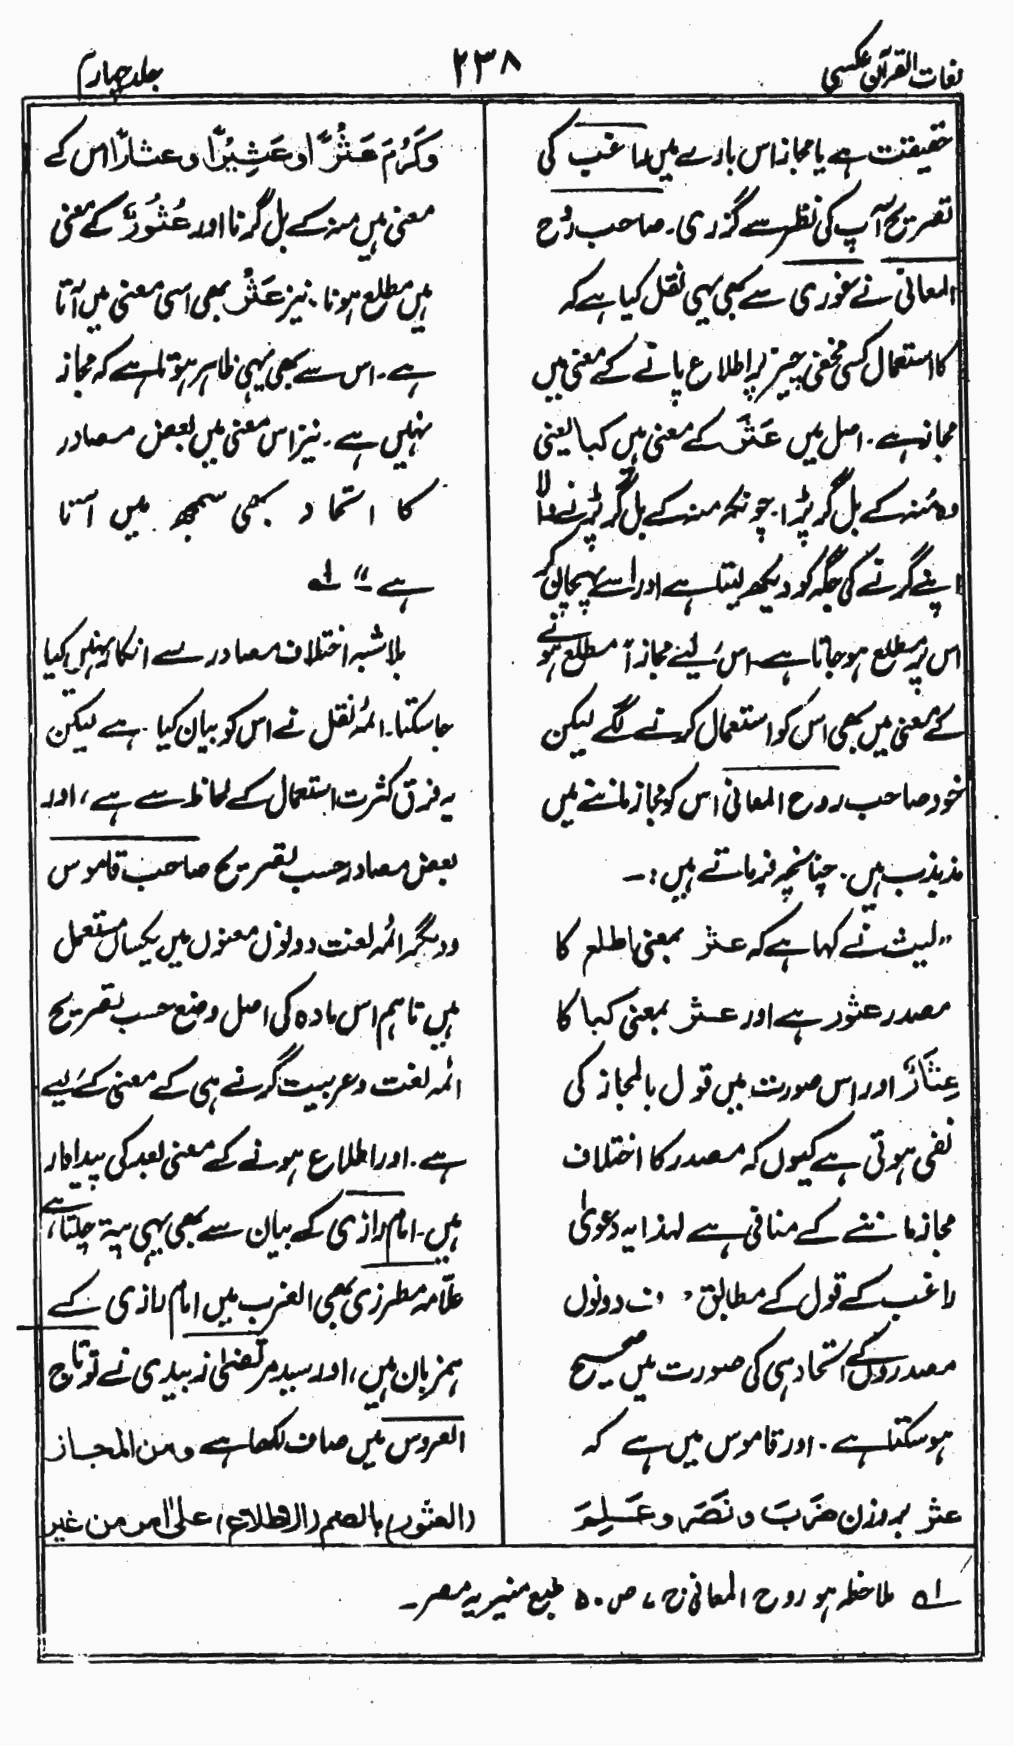 لغات القرآن عکسی
۲۳۸
جلد چہارم
حقیقت ہے یا مجاز اس بارے میں راغب کی
تصریح آپ کی نظر سے گزری۔ صاحب روح
المعانی نے غوری سے بھی یہی نقل کیا ہے کہ
کا استعمال کسی مخفی چیز پر اطلاع پانے کے معنی میں
مجاز ہے۔ اصل میں عَثَرَ کے معنی ہیں کبا یعنی
وہ مُنہ کے بل گر پڑا۔ چونکہ منہ کے بل گر پڑنے والا
اپنے گرنے کی جگہ کو دیکھ لیتا ہے اور اسے پہچان کر
اس پر مطلع ہو جاتا ہے۔ اس لیے مجازاً مطلع ہونے
کے معنی میں بھی اس کو استعمال کرنے لگے لیکن
خود صاحب روح المعانی اس کو مجاز ماننے میں
مذبذب ہیں۔ چنانچہ فرماتے ہیں:۔
"لیث نے کہا ہے کہ عثر بمعنی اطلع کا
مصدر عثور ہے اور عثر بمعنی کبا کا
عِثَارٌ اور اس صورت میں قول بالمجاز کی
نفی ہوتی ہے کیوں کہ مصدر کا اختلاف
مجاز ماننے کے منافی ہے لہذا یہ دعویٰ
راغب کے قول کے مطابق دونوں
مصدروں کے اتحاد ہی کی صورت میں صحیح
ہو سکتا ہے۔ اور قاموس میں ہے کہ
عثر بروزن ضَرَبَ و نَصَرَ و عَلِمَ
وکَرُمَ عَثْرًا و عَثِیْرًا و عثارًا اس کے
معنی ہیں منہ کے بل گرنا اور عُثُورٌ کے معنی
ہیں مطلع ہونا۔ نیز عَثْرٌ بھی اسی معنی میں آتا
ہے۔ اس سے بھی یہی ظاہر ہوتا ہے کہ مجاز
نہیں ہے۔ نیز اس معنی میں بعض مصادر
کا سمجھ میں آنا
ہے" لہ
بلا شبہ اختلاف مصادر سے انکار نہیں کیا
جا سکتا۔ ائمۂ نقل نے اس کو بیان کیا ہے لیکن
یہ فرق کثرت استعمال کے لحاظ سے ہے، اور
بعض مصادر حسب تصریح صاحب قاموس
و دیگر ائمہ لغت دونوں معنوں میں یکساں مستعمل
ہیں تاہم اس مادہ کی اصل وضع حسب تصریح
ائمہ لغت و عربیت گرنے ہی کے معنی کے لیے
ہے۔ اور اطلاع ہونے کے معنی بعد کی پیداوار
ہیں۔ امام رازی کے بیان سے بھی یہی پتہ چلتا ہے،
علامہ مطرزی بھی المغرب میں امام رازی کے
ہمزبان ہیں، اور سید مرتضیٰ زبیدی نے تو تاج
العروس میں صاف لکھا ہے ومن المجاز
(العثور) بالضم (الاطلاع) علی امر من غیر
لہ ملاحظہ ہو روح المعانی ج ۷ ص ۵۰ طبع منیریہ مصر۔